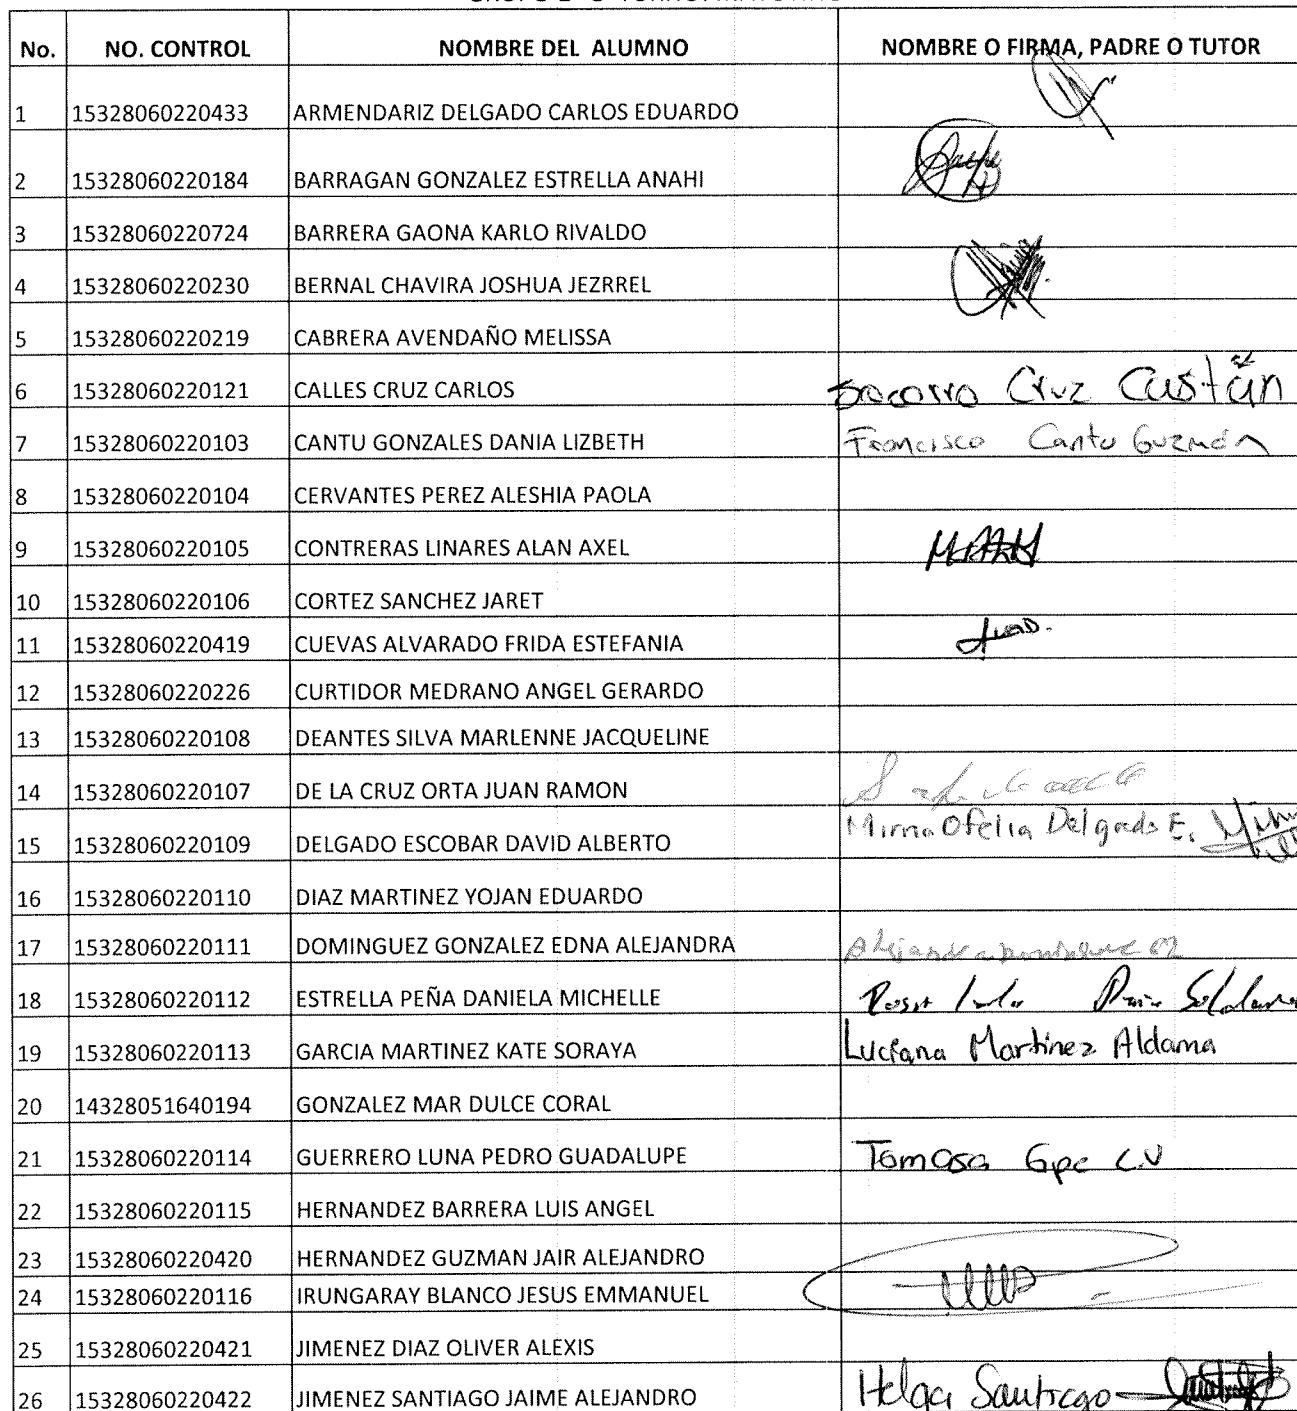 No. NO. CONTROL NOMBRE DEL ALUMNO NOMBRE O FIRMA, PADRE O TUTOR
1 15328060220433 ARMENDARIZ DELGADO CARLOS EDUARDO
2 15328060220184 BARRAGAN GONZALEZ ESTRELLA ANAHI
3 15328060220724 BARRERA GAONA KARLO RIVALDO
4 15328060220230 BERNAL CHAVIRA JOSHUA JEZRREL
5 15328060220219 CABRERA AVENDAÑO MELISSA
6 15328060220121 CALLES CRUZ CARLOS Socorro Cruz Castán
7 15328060220103 CANTU GONZALES DANIA LIZBETH Francisco Cantu Guzmán
8 15328060220104 CERVANTES PEREZ ALESHIA PAOLA
9 15328060220105 CONTRERAS LINARES ALAN AXEL
10 15328060220106 CORTEZ SANCHEZ JARET
11 15328060220419 CUEVAS ALVARADO FRIDA ESTEFANIA
12 15328060220226 CURTIDOR MEDRANO ANGEL GERARDO
13 15328060220108 DEANTES SILVA MARLENNE JACQUELINE
14 15328060220107 DE LA CRUZ ORTA JUAN RAMON
15 15328060220109 DELGADO ESCOBAR DAVID ALBERTO Mirna Ofelia Delgado E.
16 15328060220110 DIAZ MARTINEZ YOJAN EDUARDO
17 15328060220111 DOMINGUEZ GONZALEZ EDNA ALEJANDRA
18 15328060220112 ESTRELLA PEÑA DANIELA MICHELLE
19 15328060220113 GARCIA MARTINEZ KATE SORAYA Luciana Martinez Aldama
20 14328051640194 GONZALEZ MAR DULCE CORAL
21 15328060220114 GUERRERO LUNA PEDRO GUADALUPE Tomasa Gpe L.V
22 15328060220115 HERNANDEZ BARRERA LUIS ANGEL
23 15328060220420 HERNANDEZ GUZMAN JAIR ALEJANDRO
24 15328060220116 IRUNGARAY BLANCO JESUS EMMANUEL
25 15328060220421 JIMENEZ DIAZ OLIVER ALEXIS
26 15328060220422 JIMENEZ SANTIAGO JAIME ALEJANDRO Helga Santiago